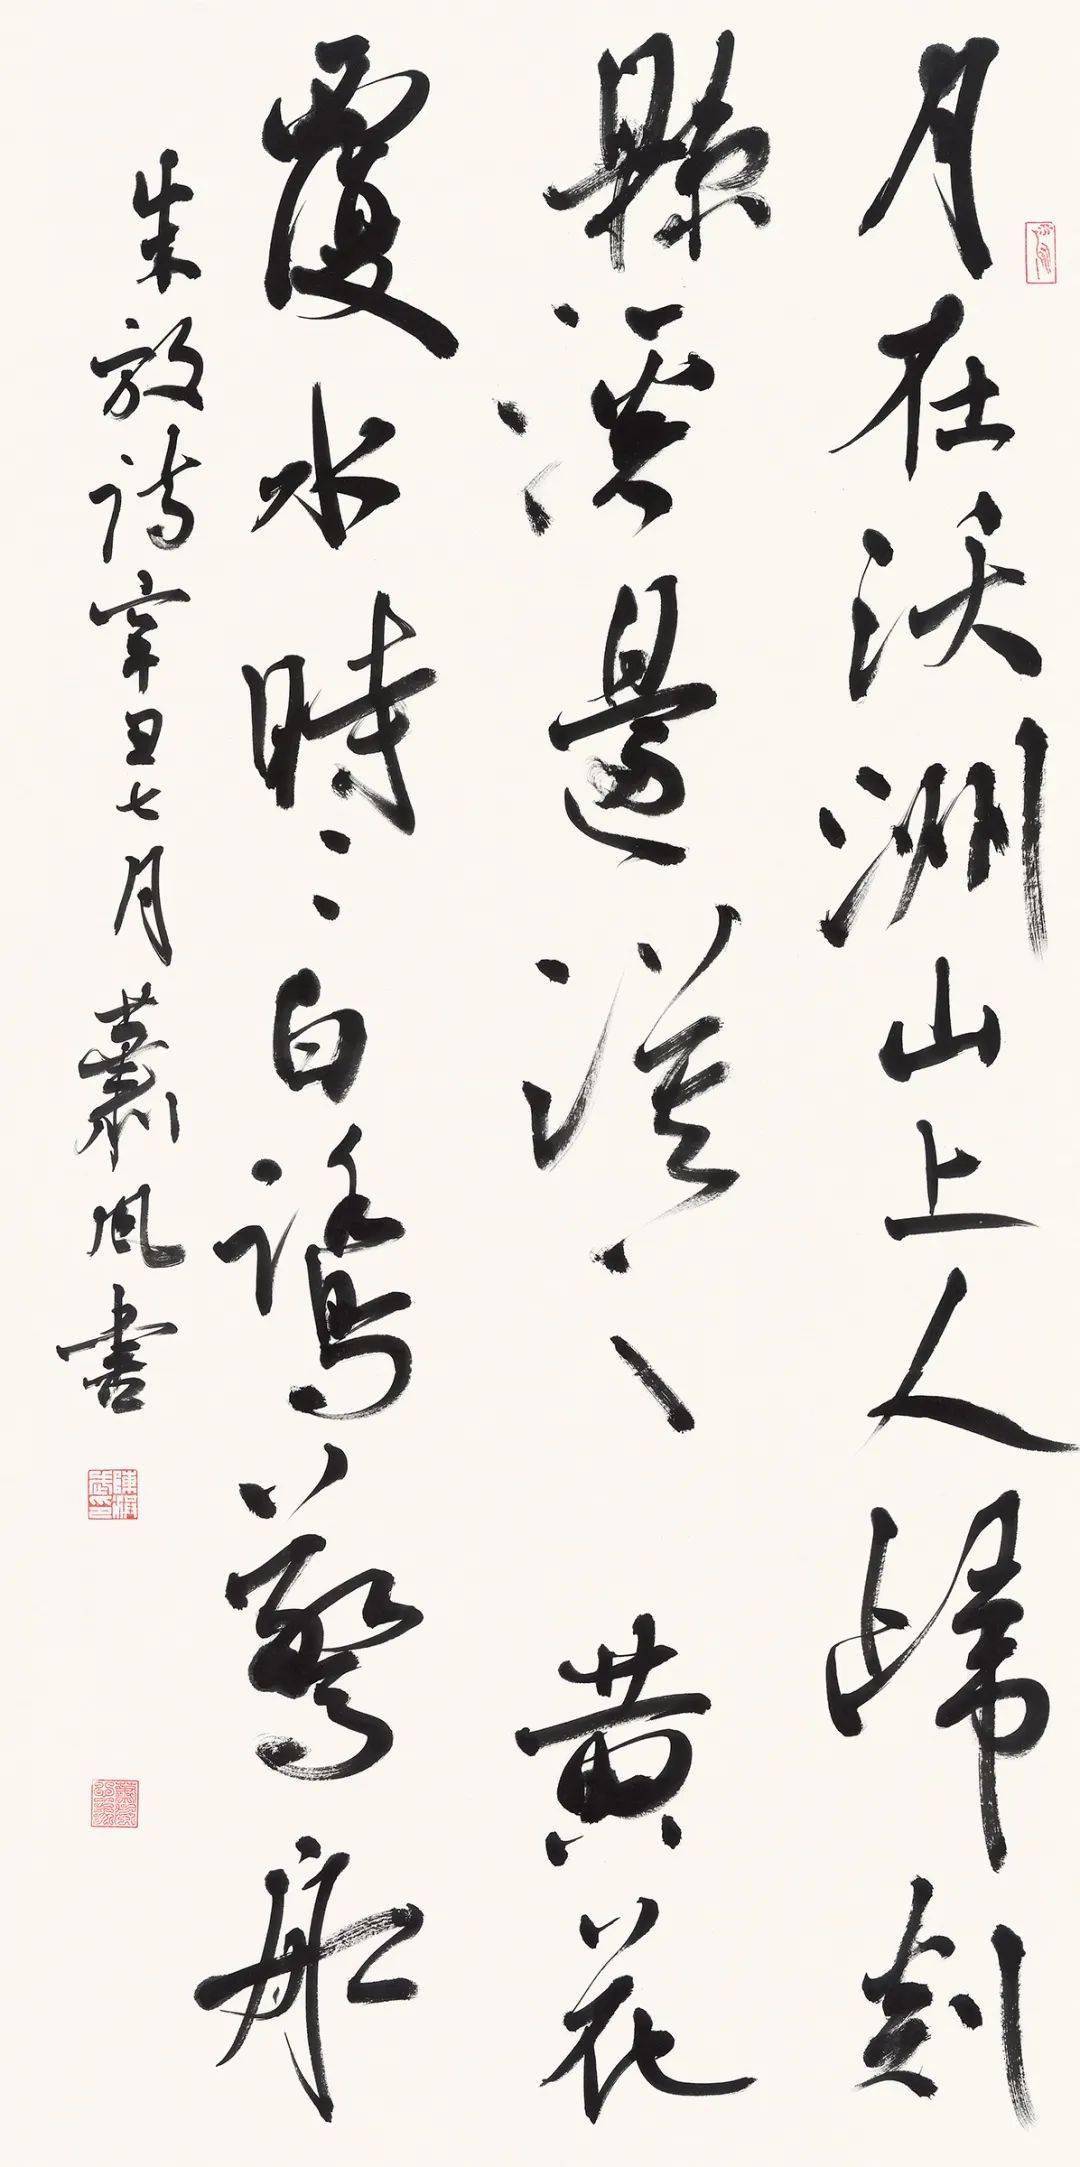 月在沃洲山上人歸剡
縣溪邊漠〻黃花
覆水時〻白鷺驚船
朱放詩辛丑七月蕭風書
陳洪武印